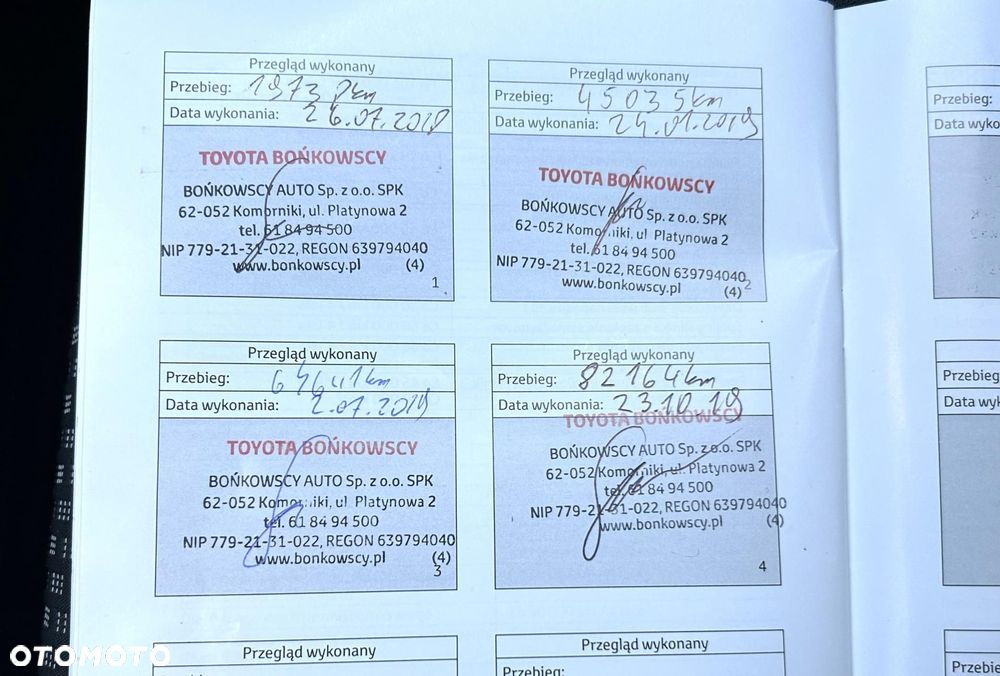 Przegląd wykonany
Przebieg: 19738km
Data wykonania: 26.07.2018
TOYOTA BOŃKOWSCY
BOŃKOWSCY AUTO Sp. z o.o. SPK
62-052 Komorniki, ul. Platynowa 2
tel. 61 84 94 500
NIP 779-21-31-022, REGON 639794040
www.bonkowscy.pl (4)
1
Przegląd wykonany
Przebieg: 45035km
Data wykonania: 24.01.2019
TOYOTA BOŃKOWSCY
BOŃKOWSCY AUTO Sp. z o.o. SPK
62-052 Komorniki, ul Platynowa 2
tel. 61 84 94 500
NIP 779-21-31-022, REGON 639794040
www.bonkowscy.pl (4)
2
Przegląd wykonany
Przebieg: 64641km
Data wykonania: 2.07.2019
TOYOTA BOŃKOWSCY
BOŃKOWSCY AUTO Sp. z o.o. SPK
62-052 Komorniki, ul Platynowa 2
tel. 61 84 94 500
NIP 779-21-31-022, REGON 639794040
www.bonkowscy.pl (4)
3
Przegląd wykonany
Przebieg: 82164km
Data wykonania: 23.10.19
TOYOTA BOŃKOWSCY
BOŃKOWSCY AUTO Sp. z o.o. SPK
62-052 Komorniki, ul. Platynowa 2
tel. 61 84 94 500
NIP 779-21-31-022, REGON 639794040
www.bonkowscy.pl (4)
4
Przegląd wykonany
Przegląd wykonany
Przebieg:
Przebieg:
Data wyko
Przebieg
Data wyk
Przebie
OTOMOTO